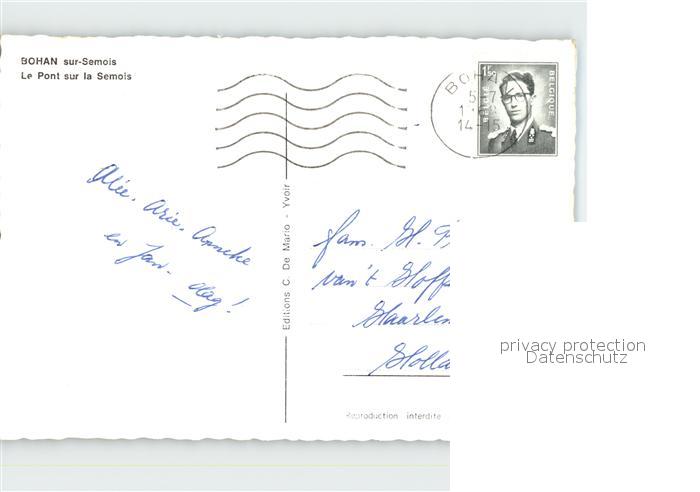 BOHAN sur-Semois
Le Pont sur la Semois
BOHAN
5-7
14-15
1F50
BELGIQUE
BELGIË
Alie, Arie, Anneke
en Jan. dag!
Editions C. De Mario - Yvoir
fam. H.
van't Hoff
Haarlem
Holla
Reproduction interdite
privacy protection
Datenschutz